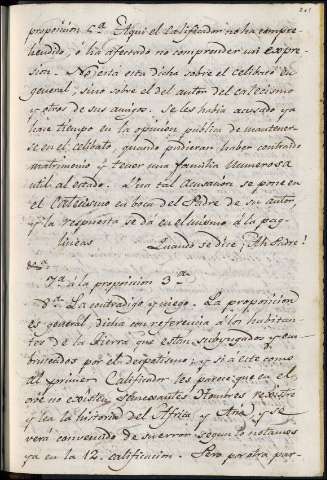 proposicion 6ª Aqui el Calificador no ha compre-
hendido, ó ha afectado no comprender mi expre-
sion. No está esta dicha sobre el celibato en
general; sino sobre el del autor del catecismo
y otros de sus amigos. Se les habia acusado ya
hace tiempo en la opinion publica de mantener-
se en el celibato, quando pudieran haber contraido
matrimonio y tener una familia numerosa
util al estado. Una tal acusacion se pone en
el Catecismo en boca del Padre de su autor,
y la respuesta se dá en el mismo á la pag.
lineas Quando se dice; Ah Padre!
7ª á la proposicion 3ª
La contradigo y niego. La proposicion
es general, dicha con referencia á los habitan-
tes de la tierra que estan subyugados y em-
brutecidos por el despotismo; y si á este como
al primer Calificador les parece que en el
orbe no existen semejantes Hombres registre
y lea la historia del Africa y Asia, y se
verá convencido de su error segun lo notamos
ya en la 12. calificacion. Pero por otra par-